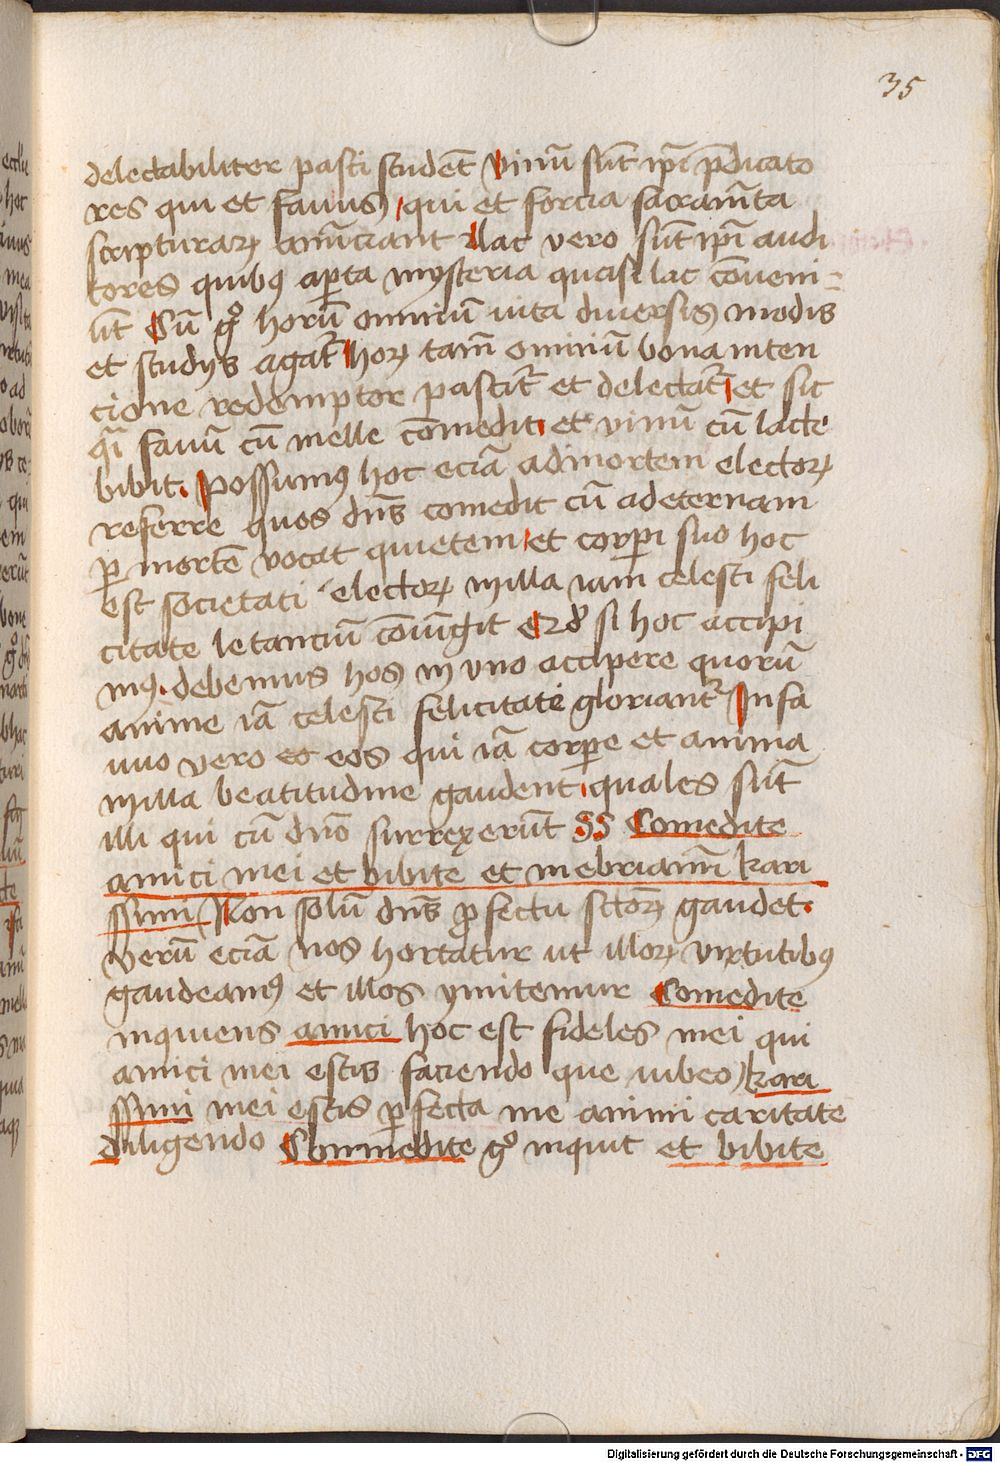 35
delectabiliter pasti studēt vinū sūt ip̄i p̄dicato
res qui et fauus qui et forcia sacram̄ta
scripturaꝝ anūciant Lac vero sūt ip̄i audi
tores quibꝰ aꝑta mysteria quasi lac cōveni-
ūt Cū gͦ horū omniū uita diuersis modis
et studys agat᷑ hoꝝ tam̄ omniū bona inten
cione redemptor pascit᷑ et delectat᷑ et sic
q̄i fauū cū melle cōmedit et vinū cū lacte
bibit. possumꝰ hoc eciā ad mortem electoꝝ
referre quos dn̄s comedit cū ad eternam
ꝑ mortē vocat quietem et corꝑi suo hoc
est societati electoꝝ milla iam celesti feli
citate letanciū cōiūgit Et si hoc accipi
mꝰ. debemus hos in vno accipere quorū
anime iā celesti felicitate gloriant᷑ In fa
uuo vero et eos qui iā corꝑe et anima
milla beatitudine gaudent quales sūt
illi qui cū dn̄o surrexerūt SS Comedite
amici mei et bibite et inebriamī kari
ssimi Non solū dn̄s ꝓfectu sctōꝝ gaudet.
verū eciā nos hortatur ut illoꝝ virtutibꝰ
gaudeamꝰ et illos ymitemur Comedite
inquiens amici hoc est fideles mei qui
amici mei estis faciendo que iubeo kari
ssimi mei estis ꝑfecta me animi caritate
diligendo Commedite gͦ inquit et bibite
Digitalisierung gefördert durch die Deutsche Forschungsgemeinschaft - DFG